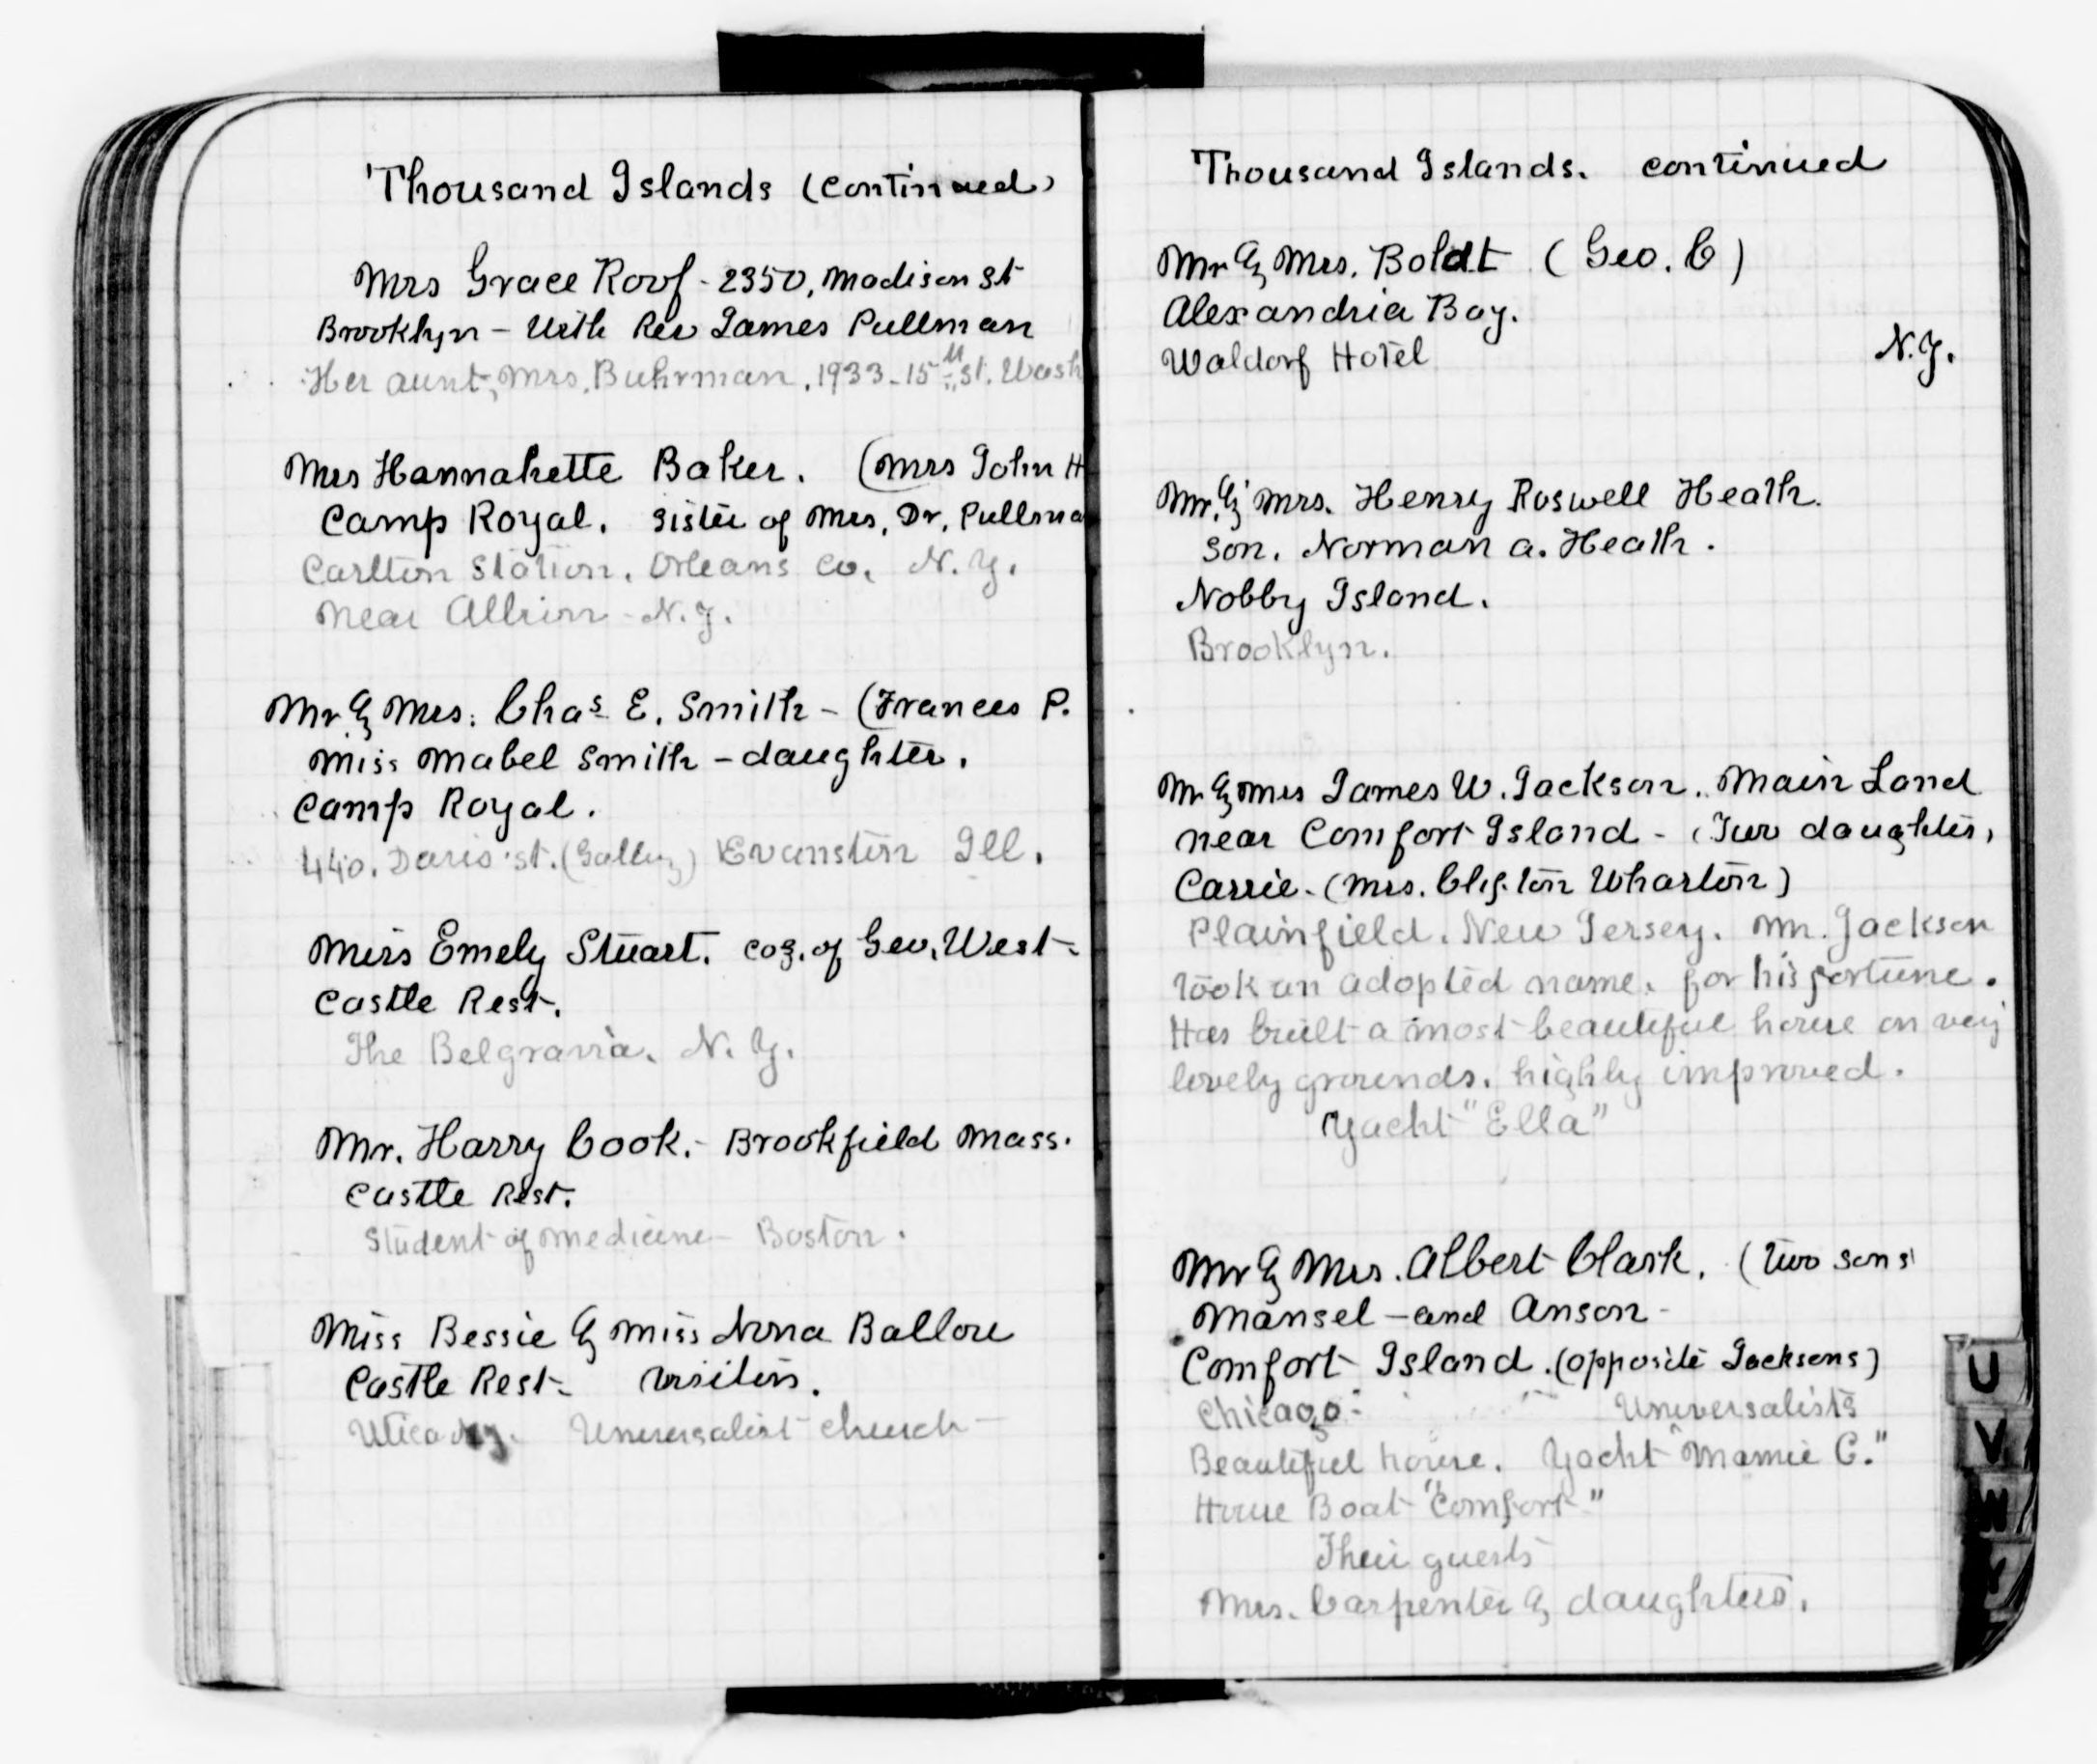 Thousand Islands (continued)
Mrs Grace Roof - 2350, Madison St
Brooklyn - With Rev James Pullman
Her aunt, Mrs. Buhrman, 1933 - 15th St. Wash
Mrs Hannahette Baker. (Mrs John H
Camp Royal. Sister of Mrs. Dr. Pullma
Carlton Station. Orleans Co. N.Y.
Near Albion - N.Y.
Mr & Mrs. Chas E. Smith - (Frances P.
Miss Mabel Smith - daughter.
Camp Royal.
440. Davis St. Evanston Ill.
Miss Emely Stuart. of Geo. West -
Castle Rest.
The Belgravia. N.Y.
Mr. Harry Cook. - Brookfield Mass.
Castle Rest.
Student of medicine - Boston.
Miss Bessie & Miss Nina Ballou
Castle Rest - visitors.
Utica NY. Universalist church -
Thousand Islands. continued
Mr & Mrs. Boldt (Geo. C)
Alexandria Bay.
Waldorf Hotel N.Y.
Mr. & Mrs. Henry Roswell Heath.
Son. Norman A. Heath.
Nobby Island.
Brooklyn.
Mr & Mrs James W. Jackson. Main Land
near Comfort Island - (Two daughters,
Carrie - (Mrs. Clifton Wharton)
Plainfield. New Jersey. Mr. Jackson
took an adopted name, for his fortune.
Has built a most beautiful house on very
lovely grounds. highly improved.
Yacht "Ella"
Mr & Mrs. Albert Clark. (two sons
Mansel - and Anson -
Comfort Island. (opposite Jacksons)
Chicago - Universalists
Beautiful house. Yacht "Mamie C."
House Boat "Comfort"
Their guests
Mrs. Carpenter & daughters.
U
V
W